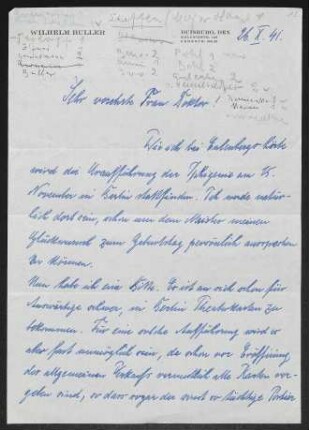 WILHELM BULLER
DUISBURG, DEN
26.X.41.
Sehr verehrte Frau Doktor!
Wie ich bei Eulenbergs hörte
wird die Uraufführung der Iphigenie am 15.
November in Berlin stattfinden. Ich werde natür-
lich dort sein, schon um dem Meister meinen
Glückwunsch zum Geburtstag persönlich aussprechen
zu können.
Nun habe ich eine Bitte. Es ist an sich schon für
Auswärtige schwer, in Berlin Theaterkarten zu
bekommen. Für eine solche Aufführung wird es
aber fast unmöglich sein, da schon vor Eröffnung
des allgemeinen Verkaufs vermutlich alle Karten ver-
geben sind, so dass sogar der sonst so tüchtige Portier